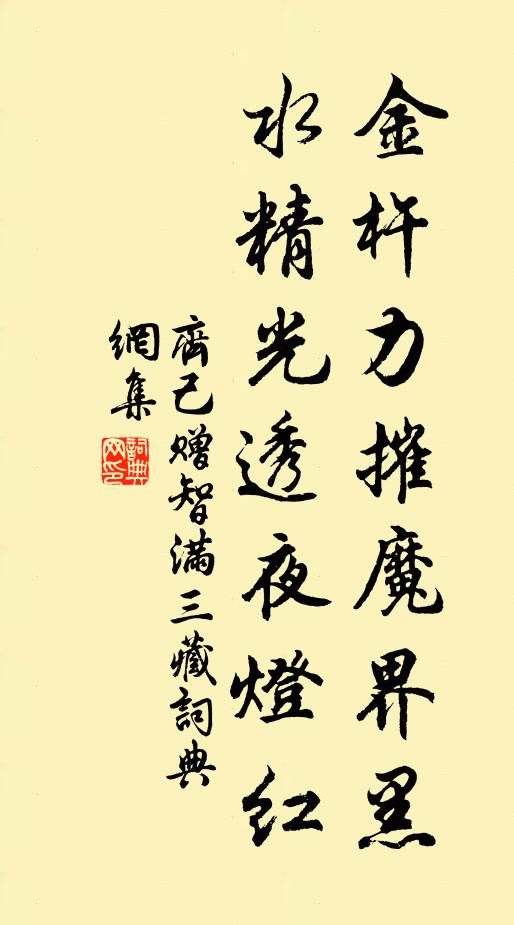 金杵力摧魔界黑
水精光透夜燈红
齊己赠智滿三藏詞典
網集
詞典
网印